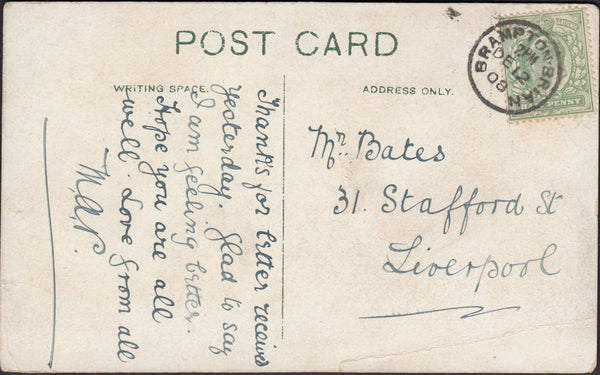 POST CARD
WRITING SPACE.
ADDRESS ONLY.
Thanks for letter received
yesterday. Glad to say
I am feeling better.
Hope you are all
well. Love from all
M.A.P.
Mr. Bates
31. Stafford St
Liverpool
BRAMPTON-BRIAN
DE 12
08
PENNY